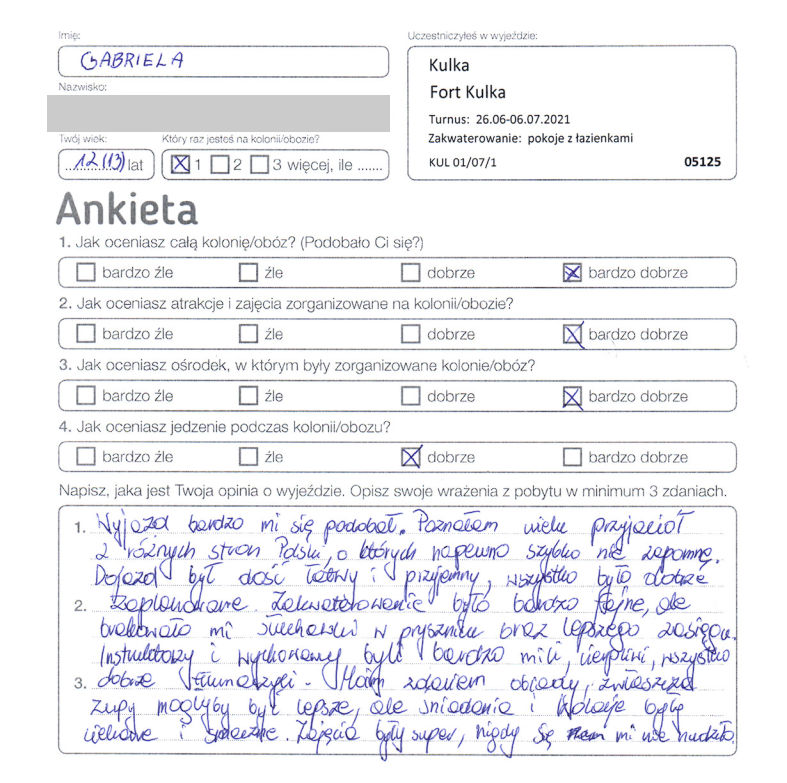 Imię:
GABRIELA
Nazwisko:
Twój wiek:
12 (13) lat
Który raz jesteś na kolonii/obozie?
1 2 3 więcej, ile .......
Uczestniczyłeś w wyjeździe:
Kulka
Fort Kulka
Turnus: 26.06-06.07.2021
Zakwaterowanie: pokoje z łazienkami
KUL 01/07/1 05125
Ankieta
1. Jak oceniasz całą kolonię/obóz? (Podobało Ci się?)
bardzo źle źle dobrze bardzo dobrze
2. Jak oceniasz atrakcje i zajęcia zorganizowane na kolonii/obozie?
bardzo źle źle dobrze bardzo dobrze
3. Jak oceniasz ośrodek, w którym były zorganizowane kolonie/obóz?
bardzo źle źle dobrze bardzo dobrze
4. Jak oceniasz jedzenie podczas kolonii/obozu?
bardzo źle źle dobrze bardzo dobrze
Napisz, jaka jest Twoja opinia o wyjeździe. Opisz swoje wrażenia z pobytu w minimum 3 zdaniach.
1. Wyjazd bardzo mi się podobał. Poznałam wielu przyjaciół
z różnych stron Polski, o których napewno szybko nie zapomnę.
Dojazd był dość łatwy i przyjemny, wszystko było dobrze
2. zaplanowane. Zakwaterowanie było bardzo fajne, ale
brakowało mi słuchawki w prysznicu oraz lepszego zasięgu.
Instruktorzy i wychowawcy byli bardzo mili, cierpliwi, wszystko
3. dobrze tłumaczyli. Moim zdaniem obiady, zwłaszcza
zupy mogłyby być lepsze, ale śniadania i kolacje były
ciekawe i smaczne. Zajęcia były super, nigdy się mi nie nudziło.